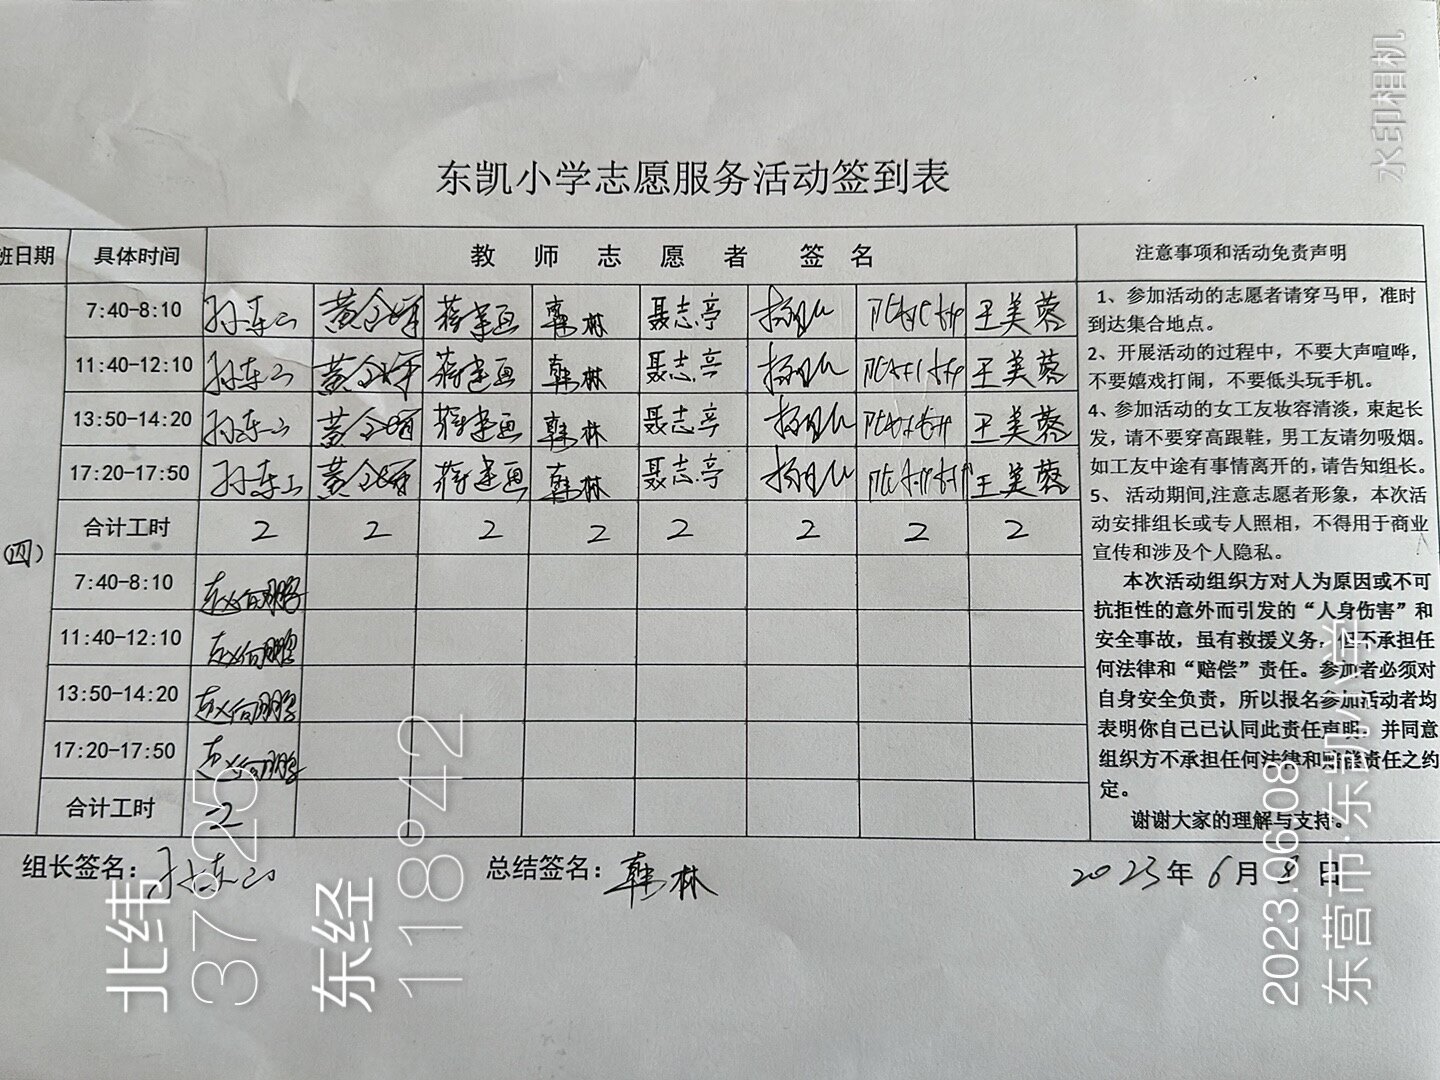 水印相机
东凯小学志愿服务活动签到表
班日期 具体时间 教师志愿者签名 注意事项和活动免责声明
7:40-8:10 孙东 韩林 聂志亭 王美蓉
11:40-12:10 孙东 韩林 聂志亭 王美蓉
13:50-14:20 孙东 韩林 聂志亭 王美蓉
17:20-17:50 孙东 韩林 聂志亭 王美蓉
合计工时 2 2 2 2 2 2 2 2
（四）
7:40-8:10 赵向鹏
11:40-12:10 赵向鹏
13:50-14:20 赵向鹏
17:20-17:50 赵向鹏
合计工时 2
1、参加活动的志愿者请穿马甲，准时
到达集合地点。
2、开展活动的过程中，不要大声喧哗，
不要嬉戏打闹，不要低头玩手机。
4、参加活动的女工友妆容清淡，束起长
发，请不要穿高跟鞋，男工友请勿吸烟。
如工友中途有事情离开的，请告知组长。
5、 活动期间,注意志愿者形象，本次活
动安排组长或专人照相，不得用于商业
宣传和涉及个人隐私。
本次活动组织方对人为原因或不可
抗拒性的意外而引发的“人身伤害”和
安全事故，虽有救援义务，但不承担任
何法律和“赔偿”责任。参加者必须对
自身安全负责，所以报名参加活动者均
表明你自己已认同此责任声明，并同意
组织方不承担任何法律和赔偿责任之约
定。
谢谢大家的理解与支持。
组长签名：孙东 总结签名：韩林 2023年6月8日
北纬
37°25
东经
118°42
2023.06.08
东营市·东凯小学